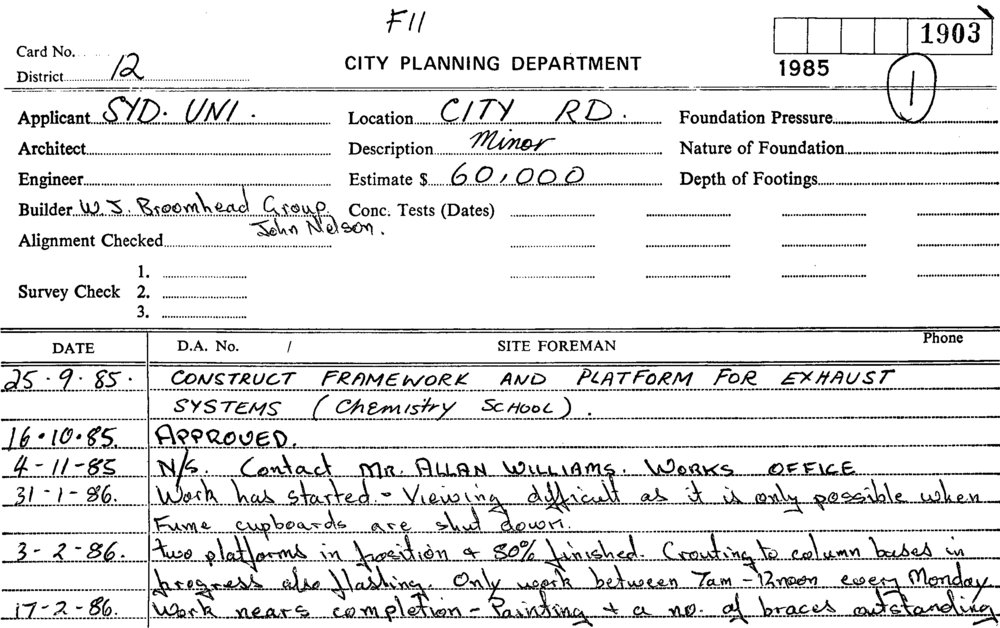 F11
1903
Card No.
1985
District 12
CITY PLANNING DEPARTMENT
1
Applicant SYD. UNI. Location CITY RD. Foundation Pressure
Architect Description Minor Nature of Foundation
Engineer Estimate $ 60,000 Depth of Footings
Builder W.J. Broomhead Group. Conc. Tests (Dates)
John Nelson.
Alignment Checked
1.
Survey Check 2.
3.
DATE D.A. No. / SITE FOREMAN Phone
25.9.85. CONSTRUCT FRAMEWORK AND PLATFORM FOR EXHAUST
SYSTEMS (Chemistry SCHOOL).
16.10.85. APPROVED.
4-11-85 N/S. Contact MR. ALLAN WILLIAMS. WORKS OFFICE
31-1-86. Work has started - Viewing difficult as it is only possible when
Fume cupboards are shut down.
3-2-86. two platforms in position & 80% finished. Grouting to column bases in
progress also flashing. Only work between 7am - 12noon every Monday.
17-2-86. Work nears completion - Painting & a no. of braces outstanding